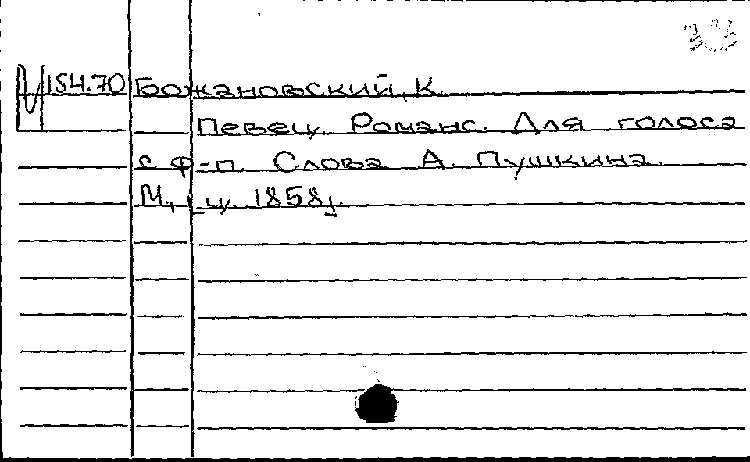 33
М 154.70 Божановский, К.
Певец. Романс. Для голоса
с ф-п. Слова А. Пушкина.
М., [ц. 1858].